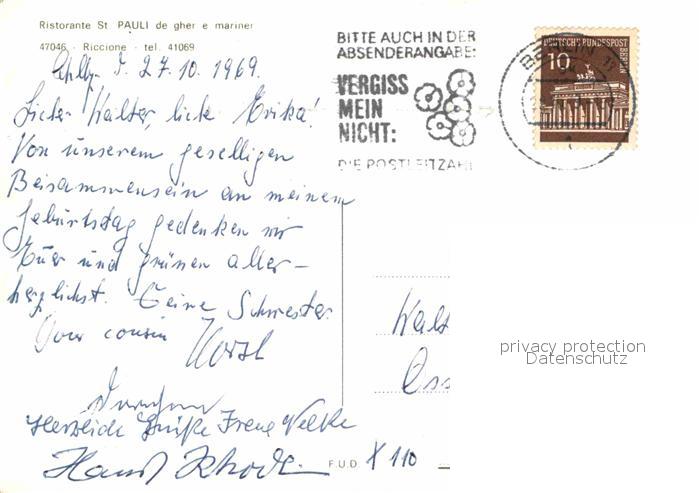 Ristorante St PAULI de gher e mariner
47046 - Riccione - tel. 41069
27.10.1969.
Lieber Walter, liebe Erika!
Von unserem geselligen
Beisammensein an meinem
Geburtstag gedenken wir
Euer und grüßen aller-
herzlichst. Deine Schwester
Your cousin Horst
Herzliche Grüße Irene
BITTE AUCH IN DER
ABSENDERANGABE:
VERGISS
MEIN
NICHT:
DIE POSTLEITZAHL
DEUTSCHE BUNDESPOST
BERLIN
10
BERLIN 11
Walt
privacy protection
Datenschutz
F.U.D.
X 110